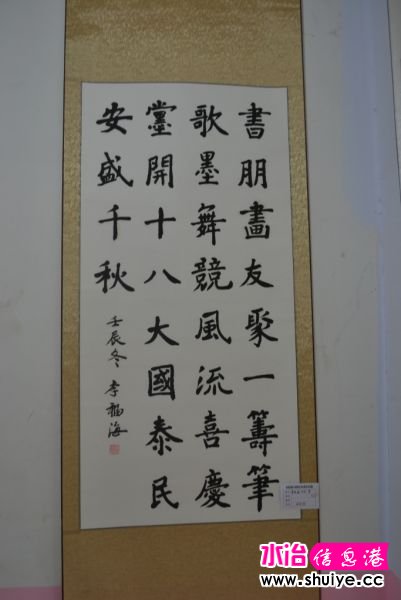 書朋畫友聚一籌筆
歌墨舞競風流喜慶
黨開十八大國泰民
安盛千秋
壬辰冬 李福海
水冶信息港
www.shuiye.cc